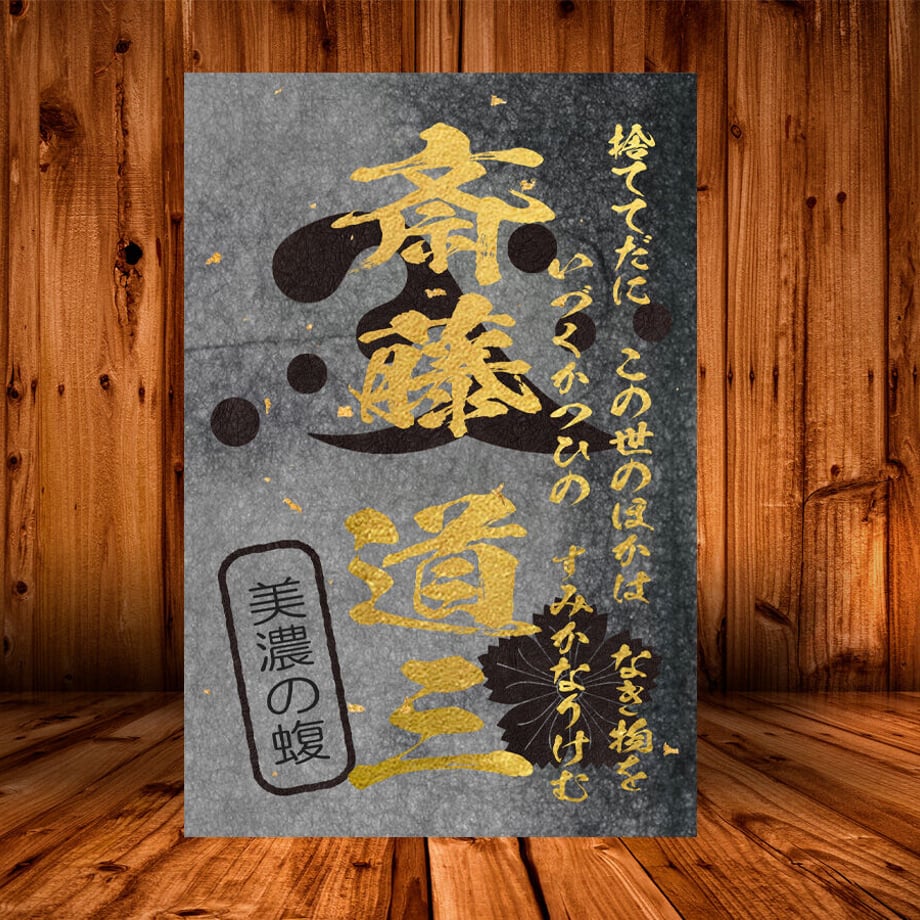 捨ててだに この世のほかは なき物を
いづくかつひの すみかなりけむ
斎藤 道三
美濃の蝮